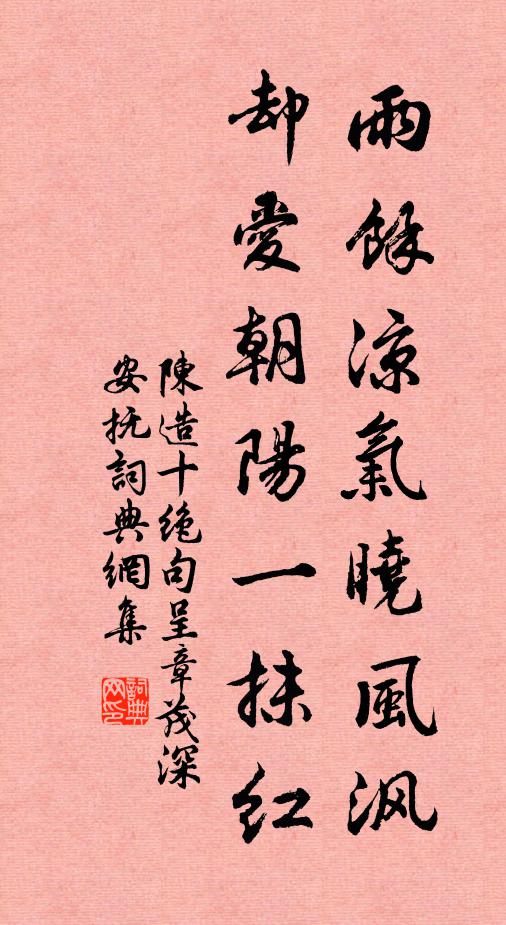 雨餘涼氣曉風沨
却愛朝陽一抹紅
陳造十絶句呈章茂深
安抚詞典網集
詞典网印